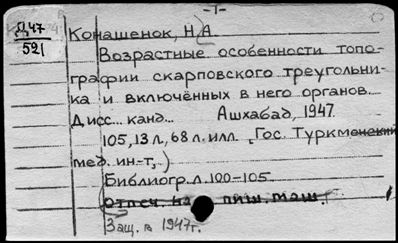 -1-
Д47
521
Конашенок, Н.А.
Возрастные особенности топо-
графии скарповского треугольни-
ка и включённых в него органов.
Дисс... канд... Ашхабад, 1947.
105, 13 л., 68 л. илл. (Гос. Туркменский
мед. ин-т,)
Библиогр. л. 100-105.
отпеч. на пиш. маш.
Защ. в 1947г.